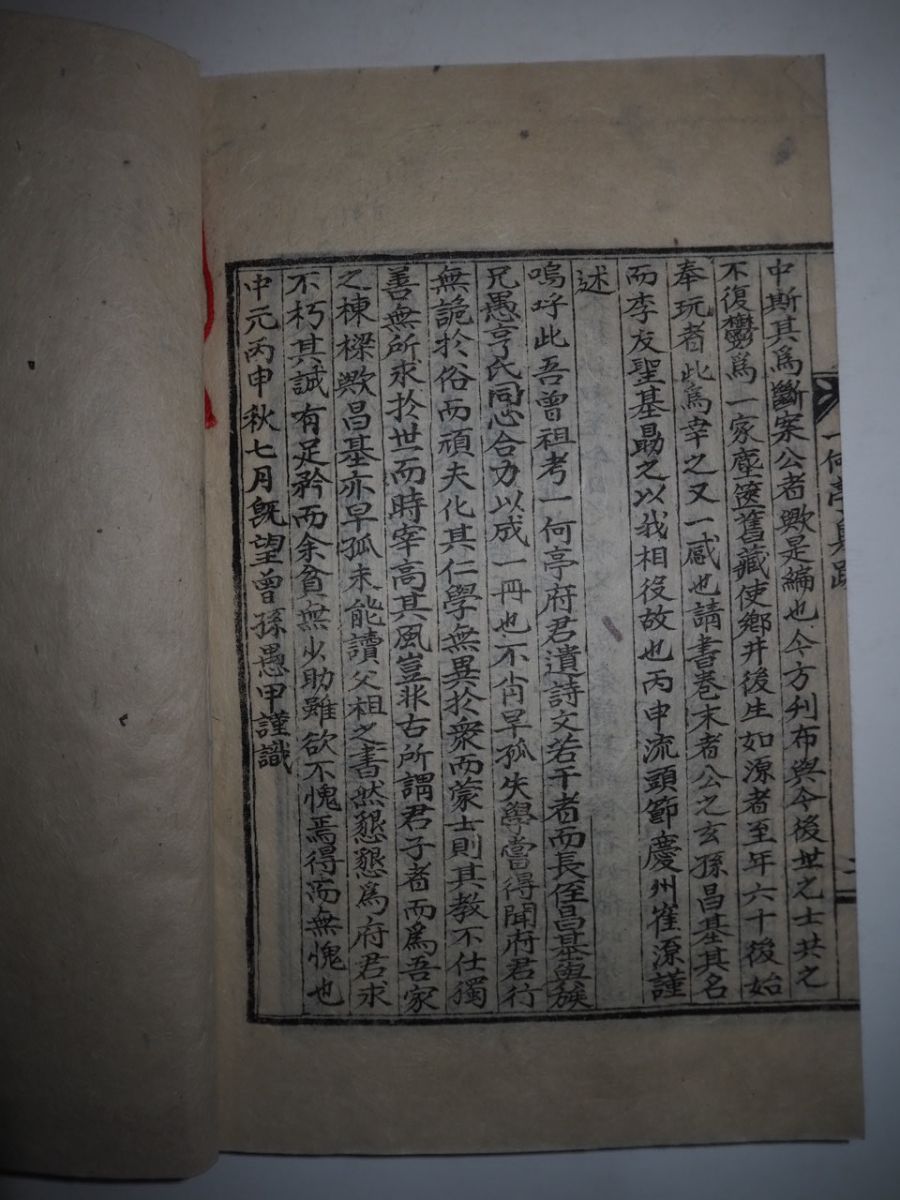 一何亭
中斯其爲斷案公者歟是編也今方刋布與今後世之士共之
不復欝爲一家塵篋舊藏使鄉井後生如源者至年六十後始
奉玩者此爲幸之又一感也請書卷末者公之玄孫昌基其名
而李友聖基勗之以我相役故也丙申流頭節慶州崔源謹
述
嗚呼此吾曾祖考一何亭府君遺詩文若干者而長侄昌基與族
兄愚亨氏同心合力以成一冊也不肖早孤失學嘗得聞府君行
無詭於俗而頑夫化其仁學無異於衆而蒙士則其教不仕獨
善無所求於世而時宰高其風豈非古所謂君子者而爲吾家
之棟樑歟昌基亦早孤未能讀父祖之書然懇懇爲府君求
不朽其誠有足矜而余貧無少助雖欲不愧焉得而無愧也
中元丙申秋七月旣望曾孫愚甲謹識